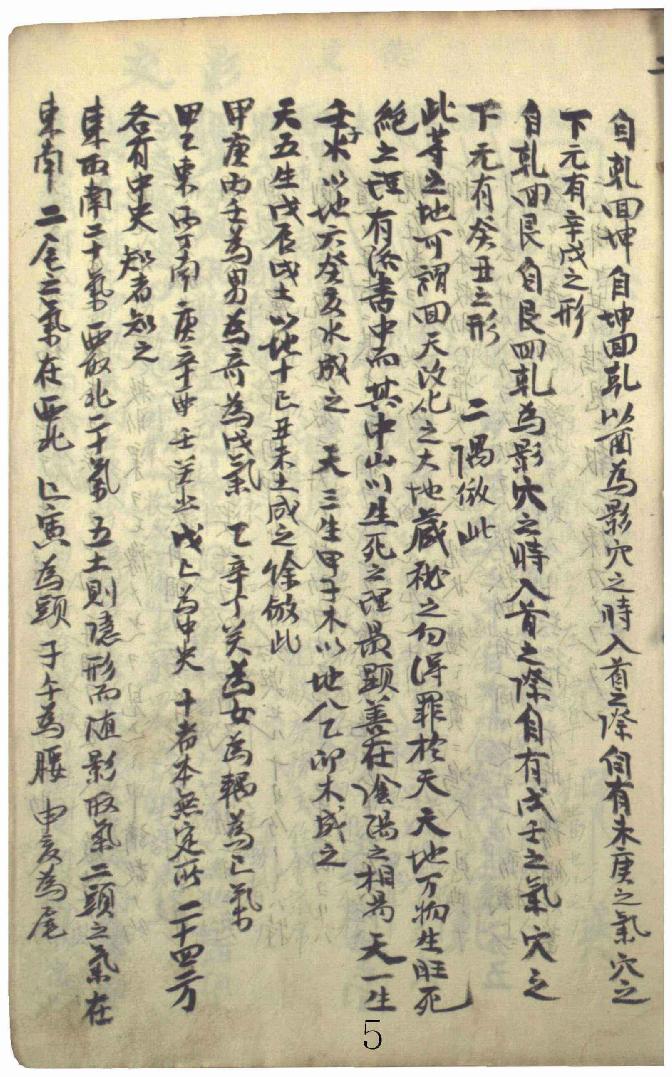 自乹回坤 自坤回乹 以酉為影穴之時 入首之際 自有未庚之氣 穴之
下元有辛戌之形
自乹回艮 自艮回乹 為影穴之時 入首之際 自有戌壬之氣 穴之
下元有癸丑之形 二隅倣此
此等之地 可謂回天改化之大地 藏秘之 勿得罪於天 天地万物生旺死
絶之理 有洛書中 而其中山川生死之理 最顯 善在陰陽之相為 天一生
壬子水 以地六癸亥水成之 天三生甲木 以地八乙卯木成之
天五生戊辰戌土 以地十己丑未土成之 餘倣此
甲庚丙壬為男為奇為戊氣 乙辛丁癸為女為耦為己氣
甲乙東 丙丁南 庚辛西 壬癸北 戊己為中央 十者本無定所 二十四方
各有中央 知者知之
東西南二十氣 西北二十氣 五土則隱形而随影取氣 二頭之氣在
東南 二尾之氣在西北 巳寅為頭 子午為腰 申亥為尾
5